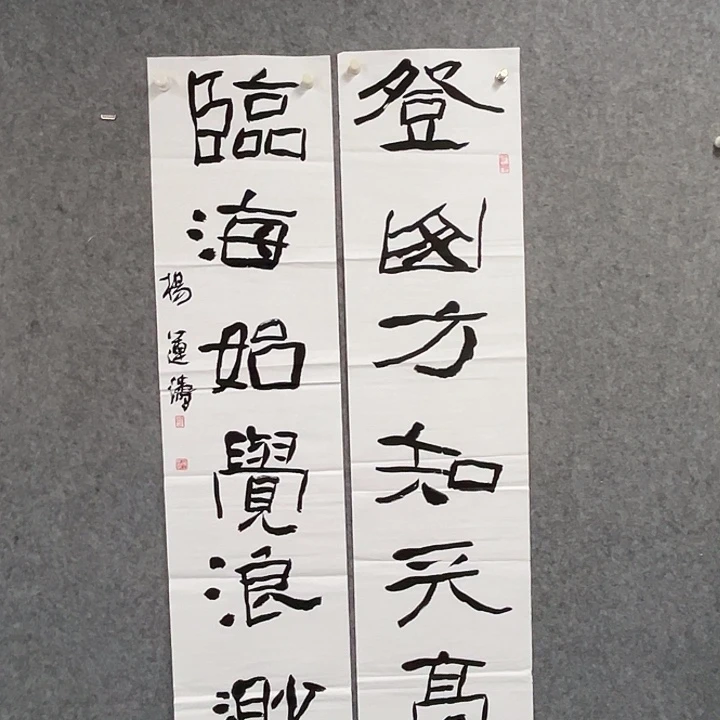 登方知天高
臨海始覺浪渺
楊運濤